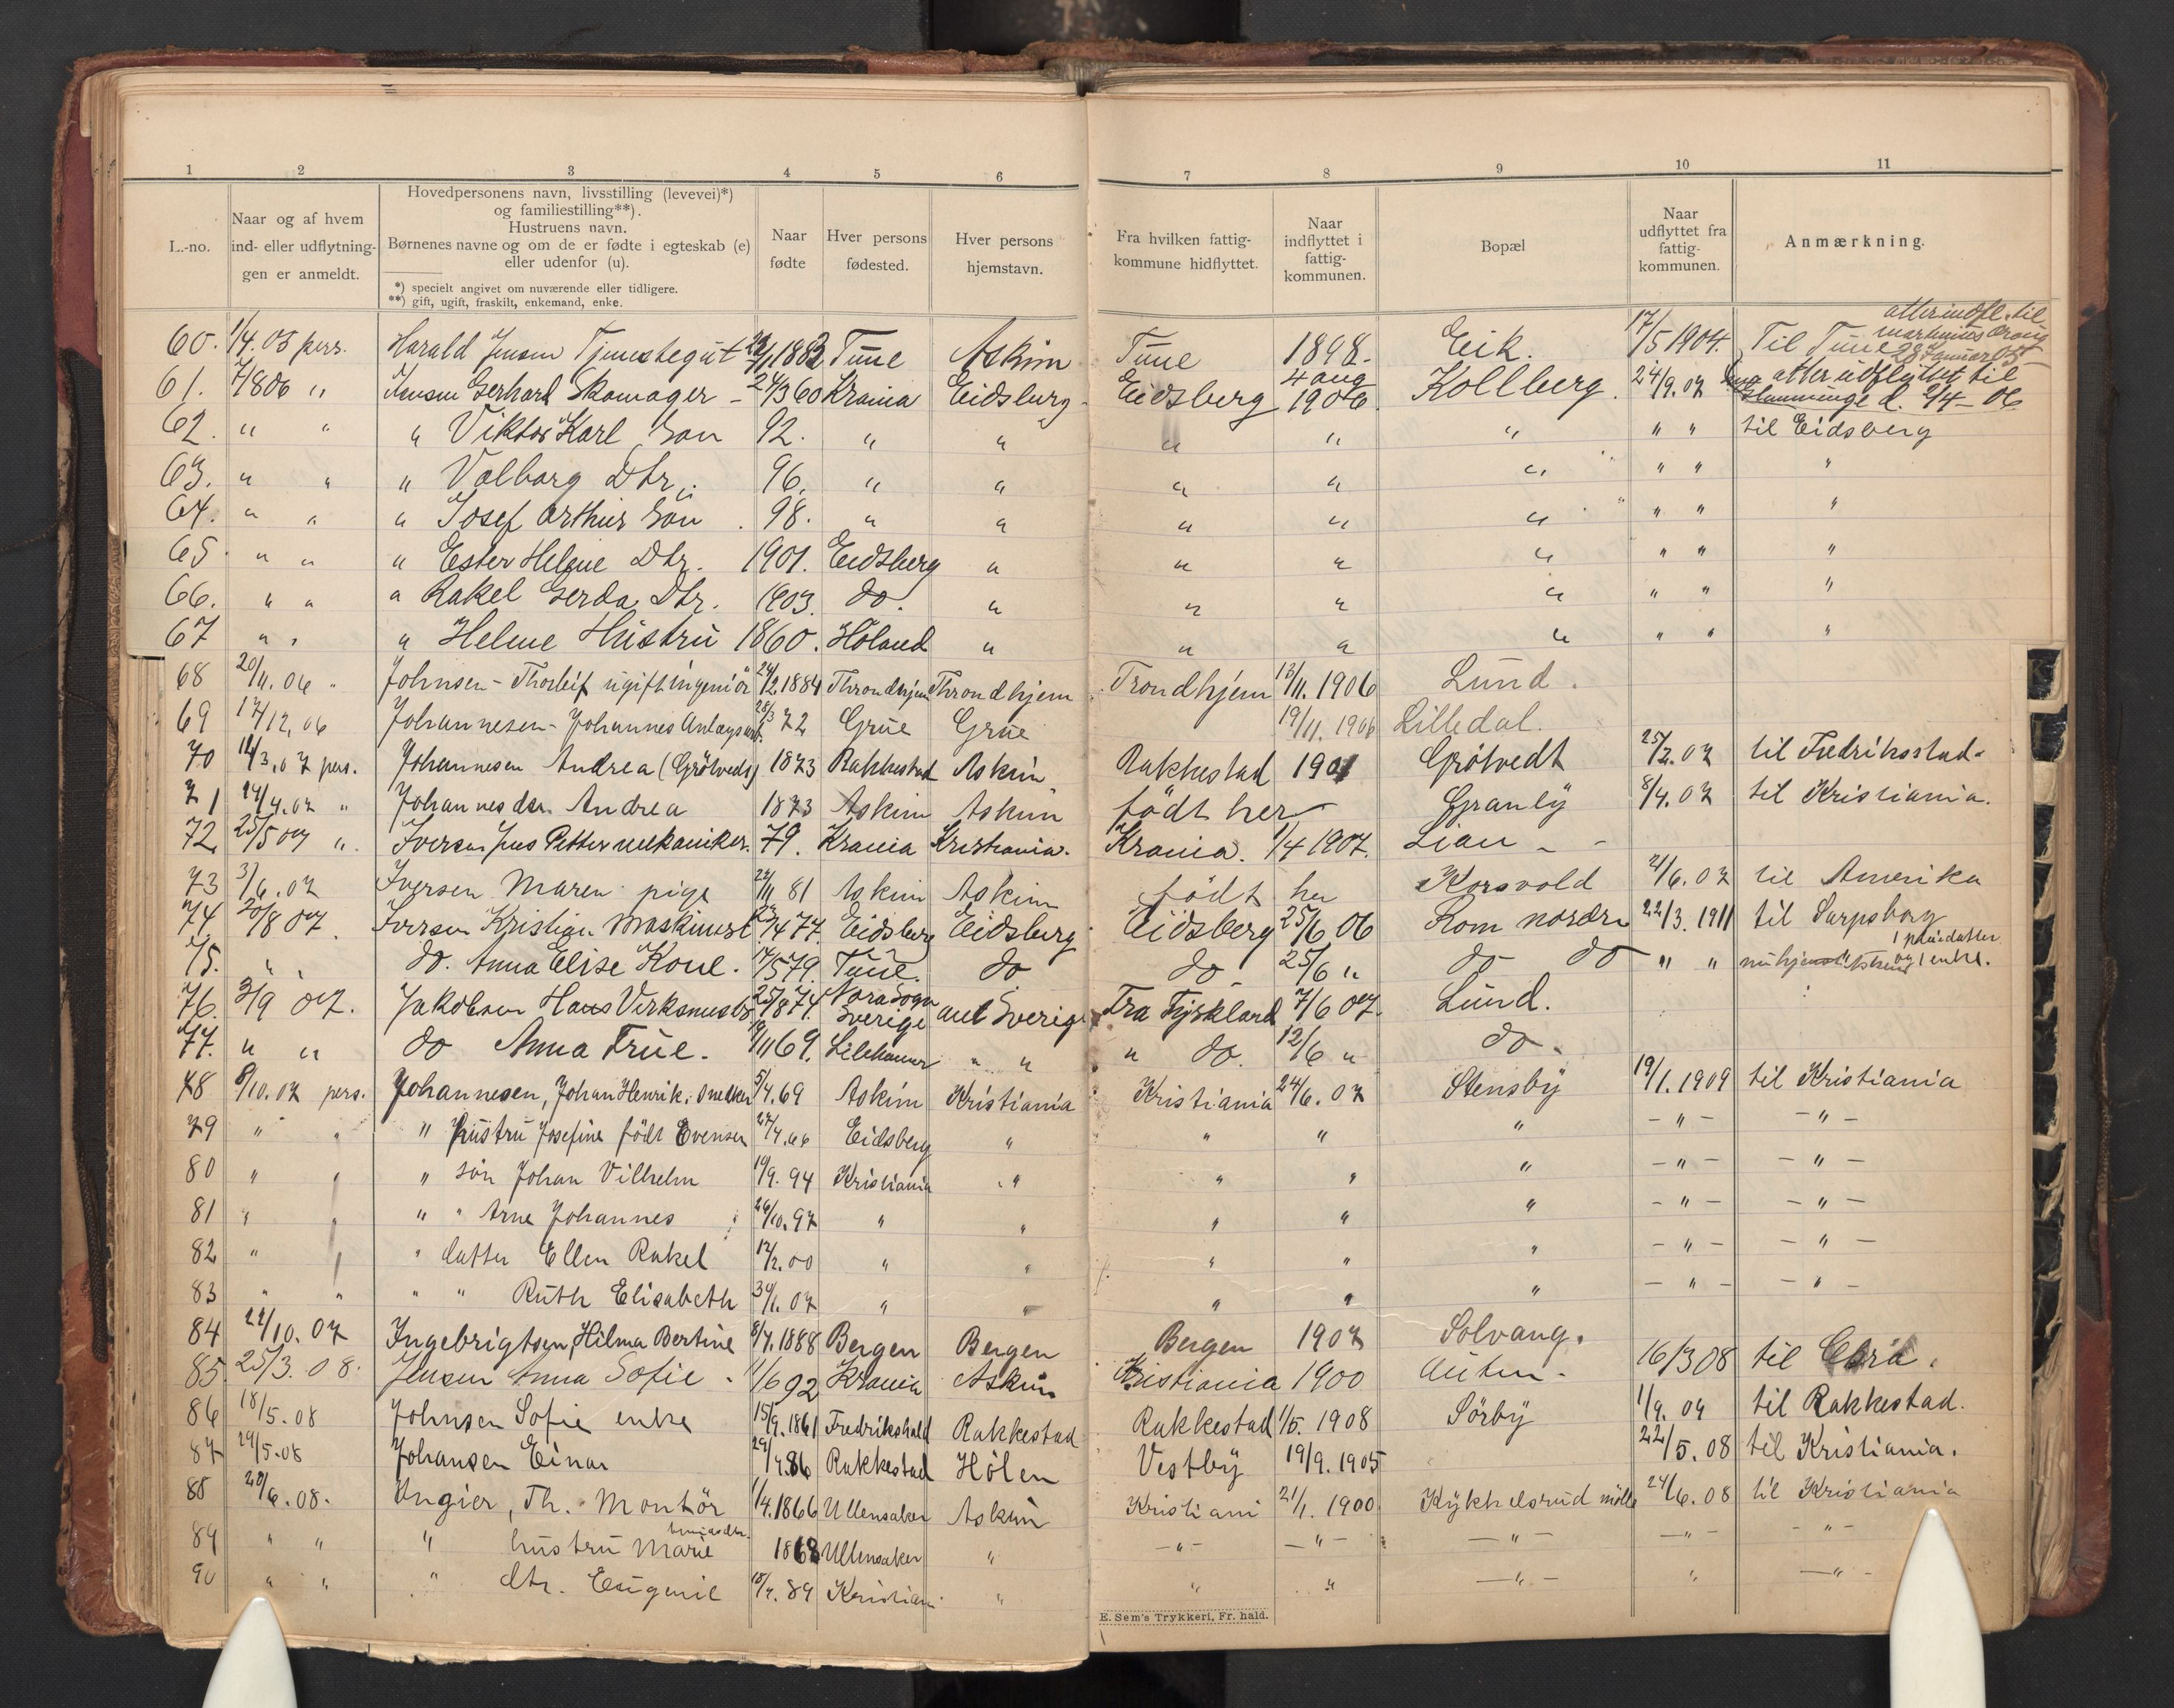 1 2 3 4 5 6 7 8 9 10 11
L.-no.
Naar og af hvem
ind- eller udflytnin-
gen er anmeldt.
Hovedpersonens navn, livsstilling (levevei)*)
og familiestilling**).
Hustruens navn.
Børnenes navne og om de er fødte i egteskab (e)
eller udenfor (u).
*) specielt angivet om nuværende eller tidligere.
**) gift, ugift, fraskilt, enkemand, enke.
Naar
fødte
Hver persons
fødested.
Hver persons
hjemstavn.
Fra hvilken fattig-
kommune hidflyttet.
Naar
indflyttet i
fattig-
kommunen.
Bopæl
Naar
udflyttet fra
fattig-
kommunen.
Anmærkning.
60. 1/4.05 pers. Harald Jensen Tjenestegut 1882 Tune Askim Tune 1898. Eik. 17/5 1904. Til Tune atterindfl. til
28 Januar 05
61. 7/806 " Jensen Gerhard Skomager - 24/3 60 Krania Eidsberg Eidsberg 4 aug 1906 Kollberg. 24/9.07 atter udflyttet til
d. 2/4-06
62. " " " Viktor Karl Søn 92. " " " " " " " til Eidsberg
63. " " " Valborg Dtr. 96. " " " " " " " "
64. " " " Josef Arthur Søn 98. " " " " " " " "
65 " " " Ester Helene Dtr. 1901. Eidsberg " " " " " " "
66. " " " Rakel Gerda Dtr. 1903. do. " " " " " " "
67 " " " Helene Hustru 1860. Høland " " " " " " "
68 20/11.06 " Johnsen - Thorleif ugift ingeniør 24/12 1884 Throndhjem Throndhjem Trondhjem 13/11. 1906 Lund.
69 17/12.06 Johannesen - Johannes Anlægsarb. 28/3 72 Grue Grue 19/11. 1906 Lilledal.
70 14/3.07 pers. Johannesen Andrea (Grøtvedt) 1873 Rakkestad Askim Rakkestad 1901 Grøtvedt 25/2.07 til Fredriksstad.
71 14/4.07 " Johannesdtr. Andrea 1873 Askim Askim født her Granly 8/4.07 til Kristiania.
72. 25/5 07 ". Iversen Jens Petter mekaniker. 79. Krania Kristiania. Krania. 1/4 1907. Lian - -
73 3/6.07 Iversen Maren pige 24/11 81 Askim Askim født her Korsvold 21/6.07 til Amerika
74. 20/8 07. Iversen Kristian Maskinist 74. Eidsberg Eidsberg Eidsberg 25/6 06 Rom nordre 22/3. 1911 til Sarpsborg
75. " " do. Anna Elise Kone. 17/5 79. Tune. do do 25/6 " do do " "
76. 3/9 07. Jakobsen Hans Verksmester 25/8 74. Nora Sogn Sverige Sverige Fra Tyskland 7/6 07. Lund.
77. " " do Anna Frue. 19/11 69. Lillehammer " " " do. 12/6 " do.
78 8/10.07 pers. Johannesen, Johan Henrik, snedker 5/4.69 Askim Kristiania Kristiania 24/6.07 Stensby 19/1.1909 til Kristiania
79 " " " hustru Josefine født Evensen 27/4.66 Eidsberg " " " " - " - - " -
80 " " " søn Johan Vilhelm 19/9. 94 Kristiania " " " " - " - - " -
81 " " " " Arne Johannes 26/10.97 " " " " " - " - - " -
82 " " " datter Ellen Rakel 12/2.00 " " " " " - " - - " -
83 " " " " Ruth Elisabeth 30/1.07 " " " " " - " - - " -
84 22/10.07 Ingebrigtsen, Hilma Bertine 8/7.1888 Bergen Bergen Bergen 1907 Solvang.
85. 25/3.08. Jensen Anna Sofie - 11/6 92 Krania Askim Kristiania 1900 Auten. 16/3 08 til
86 18/5.08 Johnsen Sofie enke 15/9.1861 Fredrikshald Rakkestad Rakkestad 1/5. 1908 Sörby 1/9. 09 til Rakkestad.
87 29/5.08 Johansen Einar 29/4.86 Rakkestad Hölen Vestby 19/9. 1905 22/5.08 til Kristiania.
88 20/6.08. Ungier, Th. Montör 1/4.1866 Ullensaker Askim Kristiani 21/1. 1900 Kykkelsrud mölle 24/6.08 til Kristiania
89 " " " hustru Marie 1868 Ullensaker " - " - - " - - " - - " - - " -
90 " " " dtr. Eugenie 18/7.89 Kristian. " " " - " - " - " -
E. Sem's Trykkeri, Fr. hald.